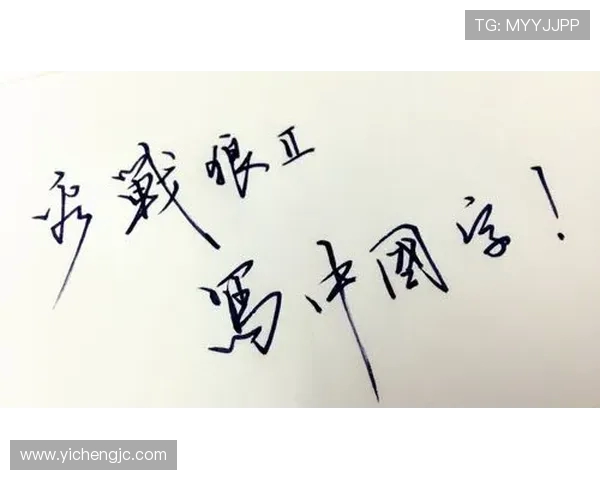 TG: MYYJJPP
戰狼II
寫中國字!
www.yichengjc.com